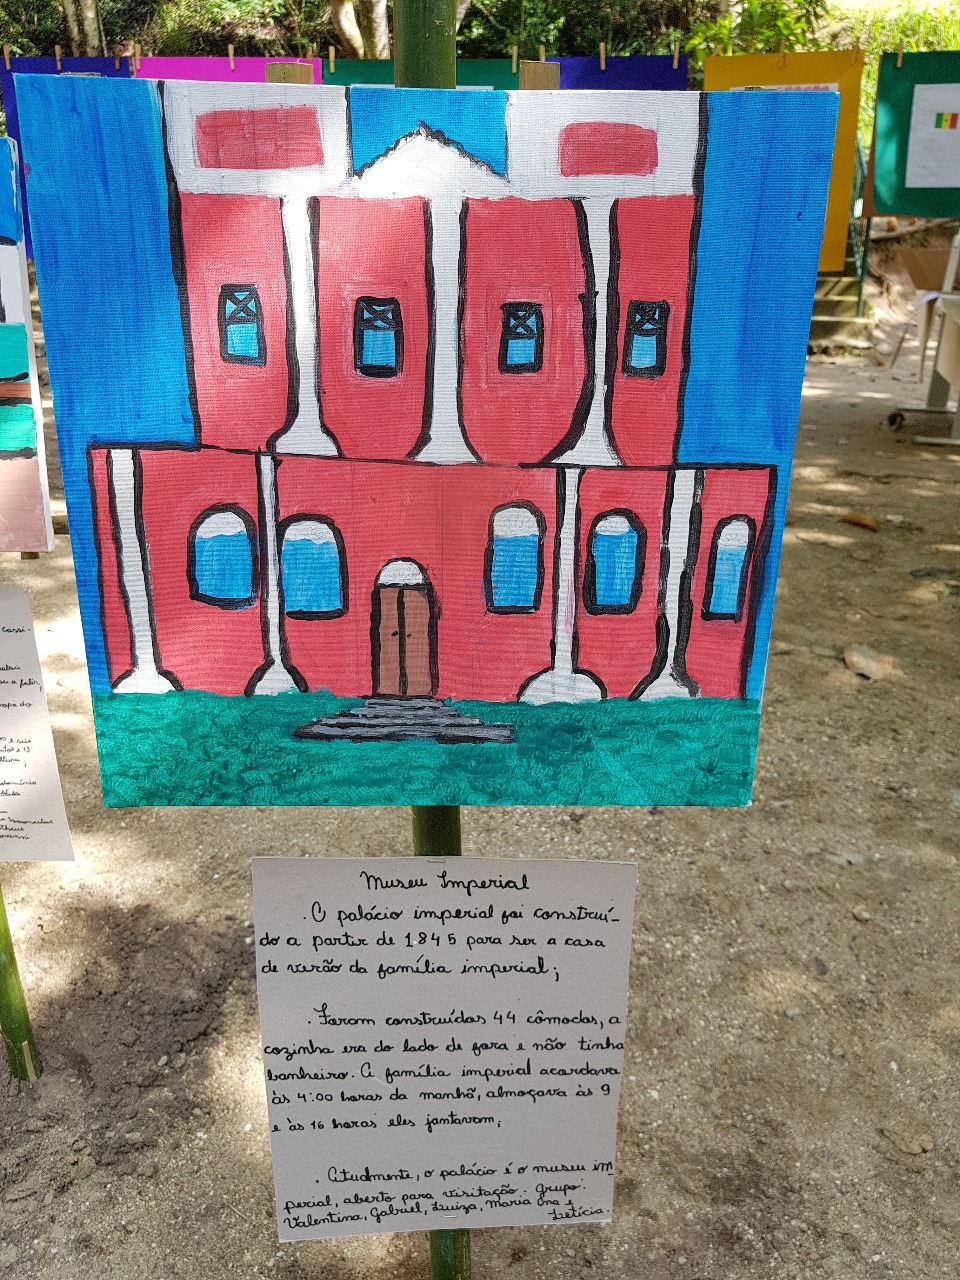 Museu Imperial
. O palácio imperial foi construí-
do a partir de 1845 para ser a casa
de verão da família imperial;
. Foram construídos 44 cômodos, a
cozinha era do lado de fora e não tinha
banheiro. A família imperial acordava
às 4:00 horas da manhã, almoçava às 9
e às 16 horas eles jantavam;
. Atualmente, o palácio é o museu im
perial, aberto para visitação. Grupo:
Valentina, Gabriel, Luiza, Maria Ana e
Letícia.